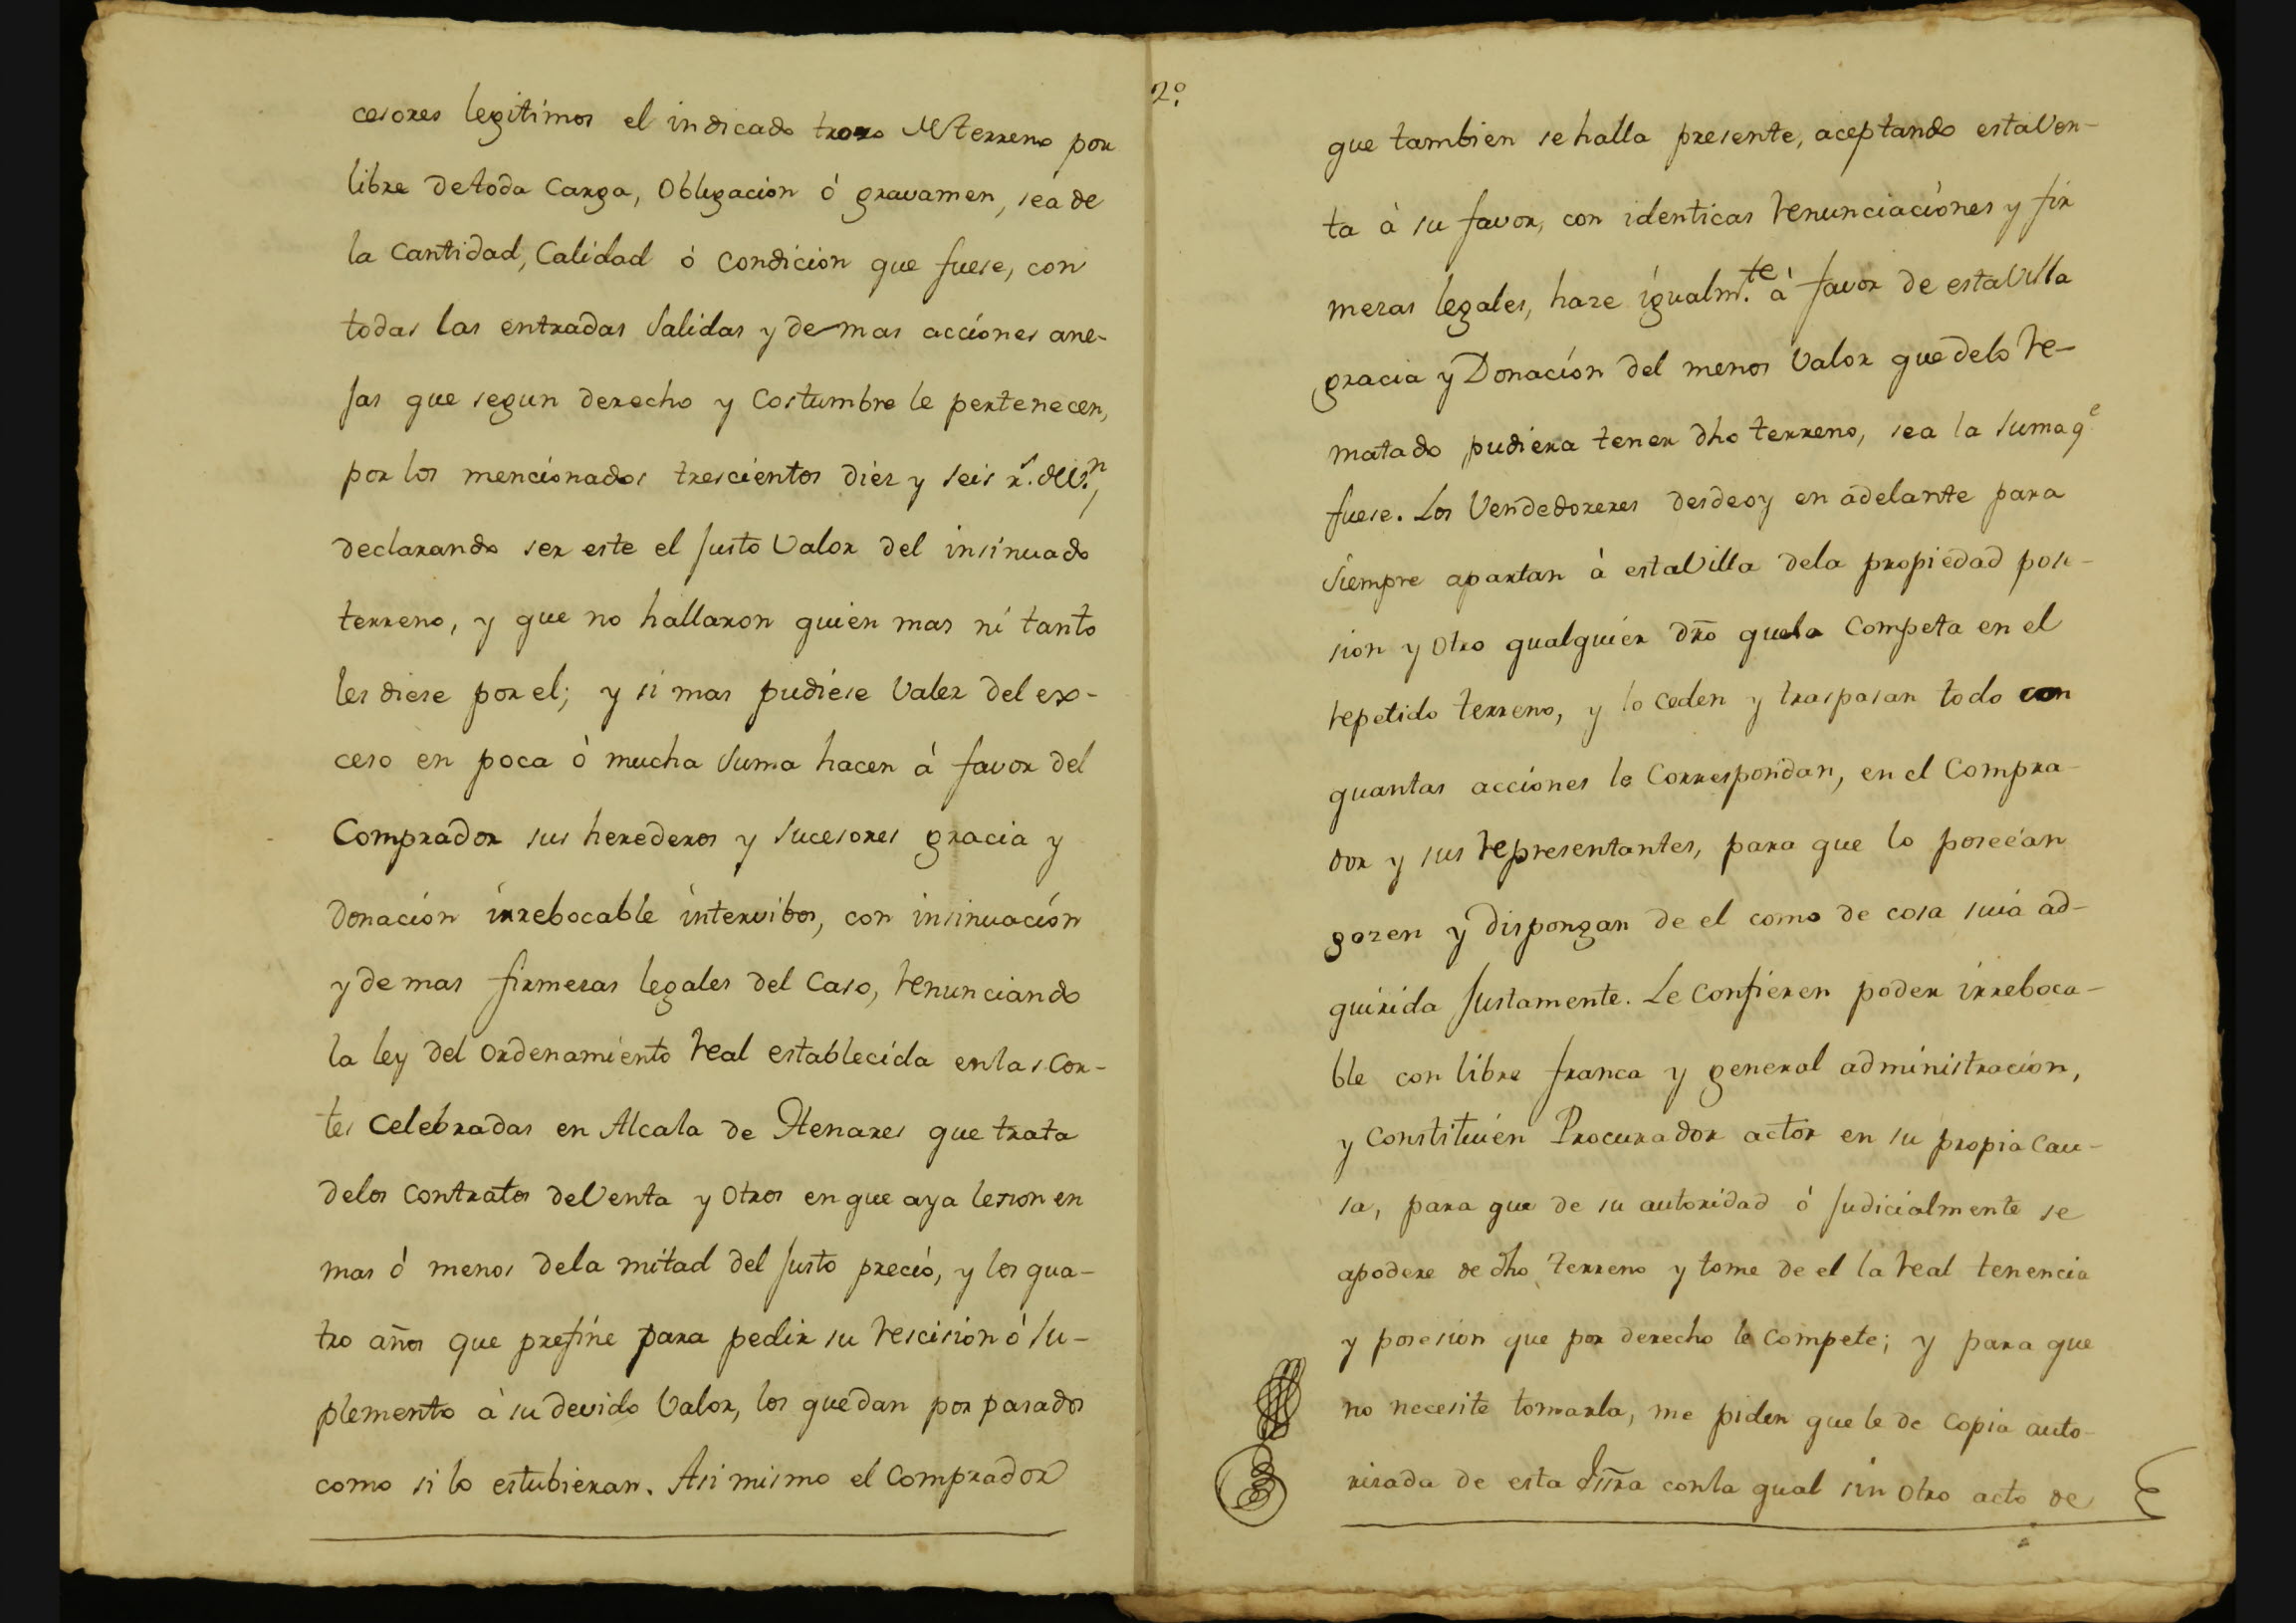 cesores legitimos el indicado trozo del terreno por
libre de toda Carga, Obligacion ó gravamen, sea de
la Cantidad, Calidad ó Condicion que fuese, con
todas las entradas Salidas y demas acciónes ane-
jas que segun derecho y Costumbre le pertenecen,
por los mencionados trescientos diez y seis r.s de v.n,
declarando ser este el justo Valor del insinuado
terreno, y que no hallaron quien mas ni tanto
les diese por el; y si mas pudiése Valer del ex-
ceso en poca ò mucha Suma hacen á favor del
Comprador sus herederos y Sucesores gracia y
donación irrebocable intervibos, con insinuación
y demas firmezas legales del Caso, renunciando
la ley del Ordenamiento real establecida en las Cor-
tes Celebradas en Alcala de Henares que trata
de los Contratos de Venta y Otros en que aya lesion en
mas ó menos de la mitad del justo preció, y los qua-
tro años que prefine para pedir su rescision ó Su-
plemento à su devido Valor, los que dan por pasados
como si lo estubieran. Asi mismo el Comprador
2.º
que tambien se halla presente, aceptando esta Ven-
ta à su favor, con identicas renunciaciónes y fir
mezas legales, haze igualm.te à favor de esta Villa
gracia y Donación del menos Valor que de lo re-
matado pudiera tener dho terreno, sea la Suma q.e
fuese. Los Vendedoreres desde oy en adelante para
Siempre apartan à esta Villa de la propiedad pose-
sion y Otro qualquier dr̃o que la Competa en el
repetido terreno, y lo Ceden y traspasan todo con
quantas acciónes le Correspondan, en el Compra-
dor y sus representantes, para que lo poseéan
gozen y dispongan de el como de cosa suia ad-
quirida justamente. Le Confieren poder irreboca-
ble con libre franca y general administración,
y Constituién Procurador actor en su propia Cau-
sa, para que de su autoridad ó judicialmente se
apodere de dho terreno y tome de el la real tenencia
y posesion que por derecho le Compete; y para que
no necesite tomarla, me piden que le de Copia auto-
risada de esta Ssr̃a con la qual sin Otro acto de